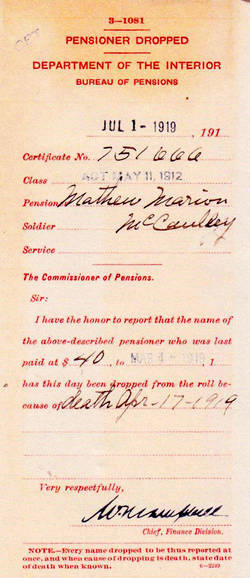 3—1081
PENSIONER DROPPED
DEPARTMENT OF THE INTERIOR
BUREAU OF PENSIONS
JUL 1 - 1919 , 191
Certificate No. 751666
Class ACT MAY 11, 1912
Pension Mathew Marion
Soldier McCaulley
Service
The Commissioner of Pensions.
Sir:
I have the honor to report that the name of
the above-described pensioner who was last
paid at $ 40 , to MAR 4 - 1919 , 1
has this day been dropped from the roll be-
cause of death Apr-17-1919
Very respectfully,
Chief, Finance Division.
NOTE.—Every name dropped to be thus reported at
once, and when cause of dropping is death, state date
of death when known.